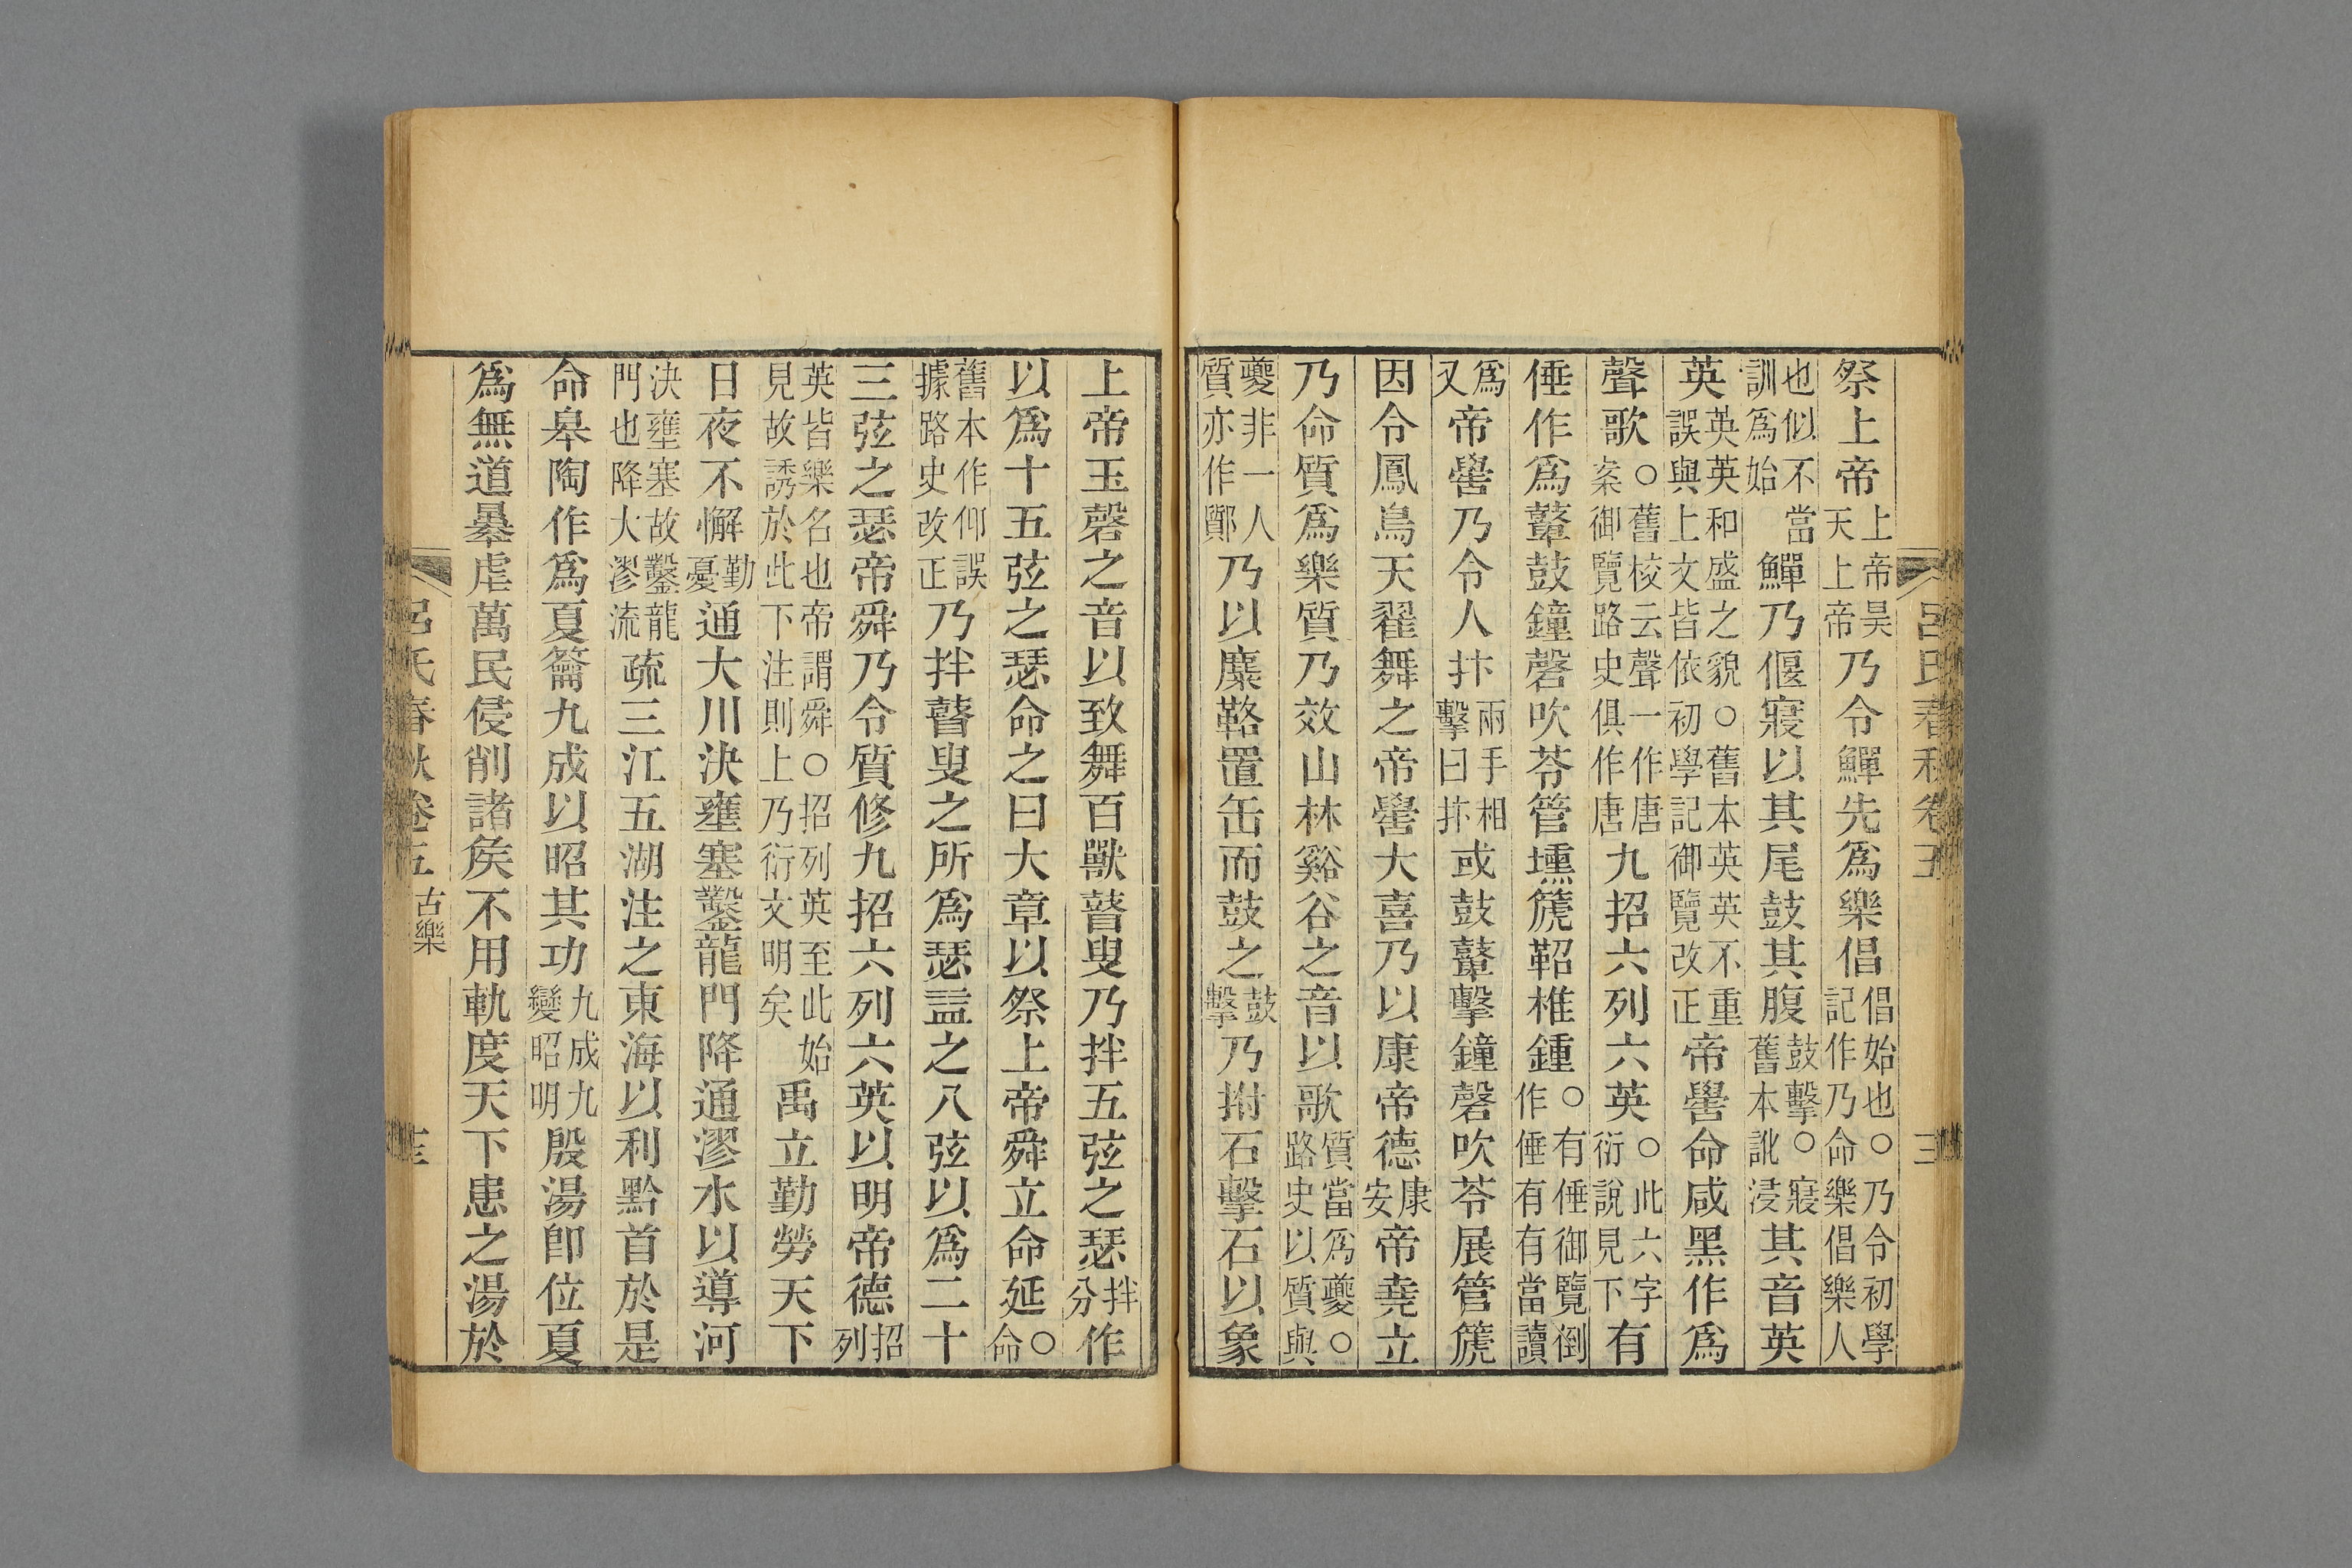 呂氏春秋卷五 三
祭上帝上帝昊天上帝乃令鱓先爲樂倡倡始也○乃令初學記作乃命樂倡樂人
也似不當訓爲始鱓乃偃寖以其尾鼓其腹鼓擊○寖舊本訛浸其音英
英英英和盛之貌○舊本英英不重誤與上文皆依初學記御覽改正帝嚳命咸黑作爲
聲歌○舊校云聲一作唐案御覽路史俱作唐九招六列六英○此六字衍說見下有
倕作爲鼙鼓鐘磬吹苓管壎箎鞀椎鍾○有倕御覽倒作倕有有當讀
爲又帝嚳乃令人抃兩手相擊曰抃或鼓鼙擊鐘磬吹苓展管箎
因令鳳鳥天翟舞之帝嚳大喜乃以康帝德康安帝堯立
乃命質爲樂質乃效山林谿谷之音以歌質當爲夔○路史以質與
夔非一人質亦作乃以麋𩊚置缶而鼓之鼓擊乃拊石擊石以象
上帝玉磬之音以致舞百獸瞽叟乃拌五弦之瑟拌分作
以爲十五弦之瑟命之曰大章以祭上帝舜立命延○命
舊本作仰誤據路史改正乃拌瞽叟之所爲瑟益之八弦以爲二十
三弦之瑟帝舜乃令質修九招六列六英以明帝德招列
英皆樂名也帝謂舜○招列英至此始見故誘於此下注則上乃衍文明矣禹立勤勞天下
日夜不懈勤憂通大川決壅塞鑿龍門降通漻水以導河
決壅塞故鑿龍門也降大漻流疏三江五湖注之東海以利黔首於是
命皋陶作爲夏籥九成以昭其功九成九變昭明殷湯卽位夏
爲無道暴虐萬民侵削諸侯不用軌度天下患之湯於
呂氏春秋卷五 古樂